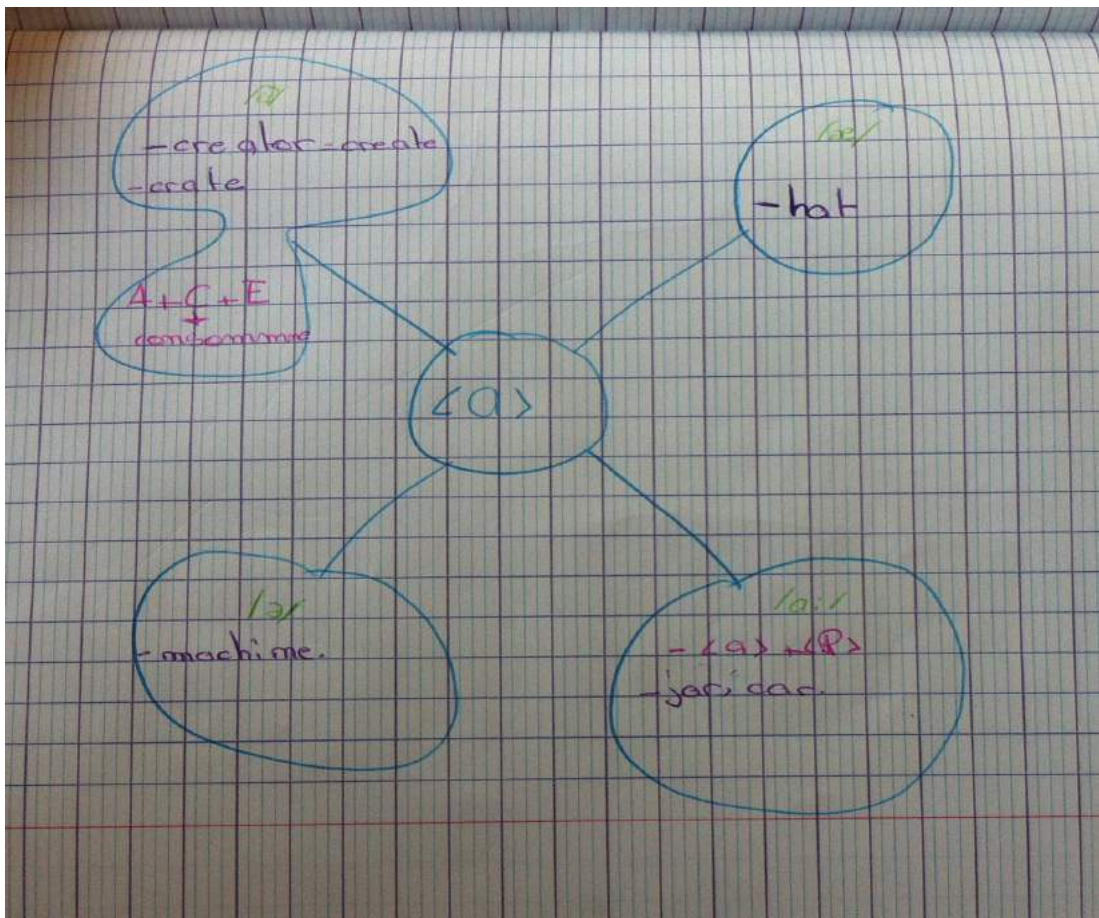 -creator-create
-crate
A + C + E
consomme
/æ/
-hat
<a>
/ə/
-machine.
/a:/
- <a> + <R>
-jar, car.